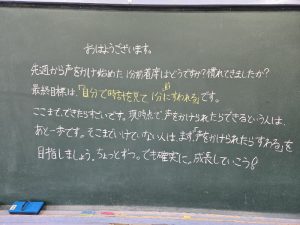 おはようございます。
先週から声をかけ始めた1分前着席はどうですか？慣れてきましたか？
最終目標は、「自分で時計を見て1分前にすわれる」です。
ここまで、できたらすごいです。現時点で声をかけられたらできるという人は、
あと一歩です。そこまでいけていない人は、まず、「声をかけられたらすわる」を
目指しましょう。ちょっとずつ。でも確実に。成長していこう！